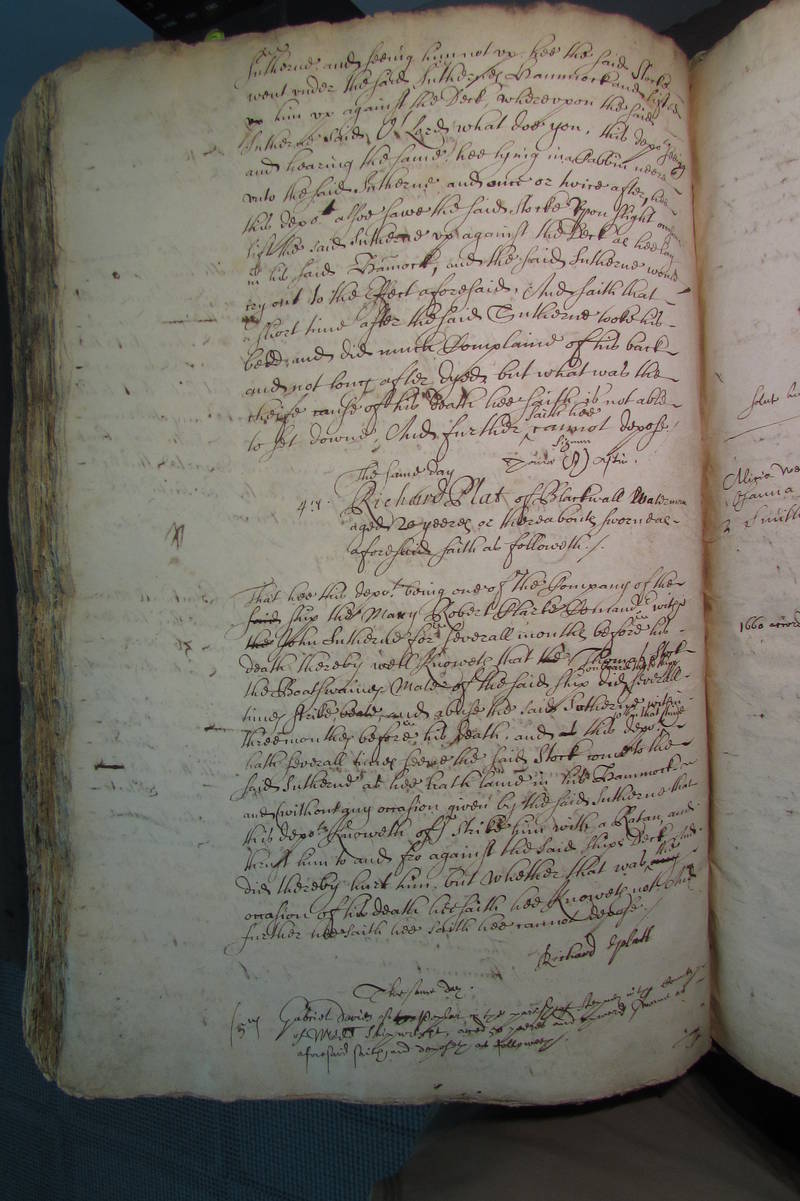 Sutherne and seeing him not vp hee the said Stocke
went vnder the said Suthernes Hammock and lifted
him vp against the Deck, wherevpon the said
Sutherne said O Lord what doe you, this depot seeing
and hearing the same, hee lying in a Cabbin neere
vnto the said Sutherne and once or twice after, hee
this depot alsoe sawe the said Stocke vpon slight
lift the said Sutherne vp against the Deck as hee lay
in his said Hamock, and the said Sutherne would
cry out to the Effect aforesaid, And saith that
a short time after the said Sutherne tooke his
bedd and did much Complaine of his back
and not long after dyed, but what was the
cheife cause of his death hee saith is not able
to set downe, And further saith hee cannot depose /
Signum
The same day
4us. Richard Plat of Blackwall Waterman
aged 20 yeeres or thereabouts sworne as
aforesaid saith as followeth /.
That hee this depot being one of the Company of the
said ship the Mary Robert Clarke Comander with
the John Sutherne for severall months before his
death thereby well knoweth that the Thomas Stock
the Boatswaines Mate of the said ship did severall
times strike beate and abuse the said Sutherne within
three monthes before his death, and this depot
hath severall times seene the said Stock come to the
said Sutherne as hee hath laine in his Hammock
and (without any occasion given by the said Sutherne that
this depot knoweth of) strike him with a Ratan and
thrust him to and fro against the said ships Deck and
did thereby hurt him, but whether that was the
occasion of his death hee saith hee knoweth not And
further hee saith hee cannot depose.
Richard Platt
The same day.
5us Gabriel Davies of Poplar in the parish of Stepney in the County
of Midd Shipwright, aged 50 yeeres and vpward sworne as
aforesaid saith and deposeth as followeth /.
1660